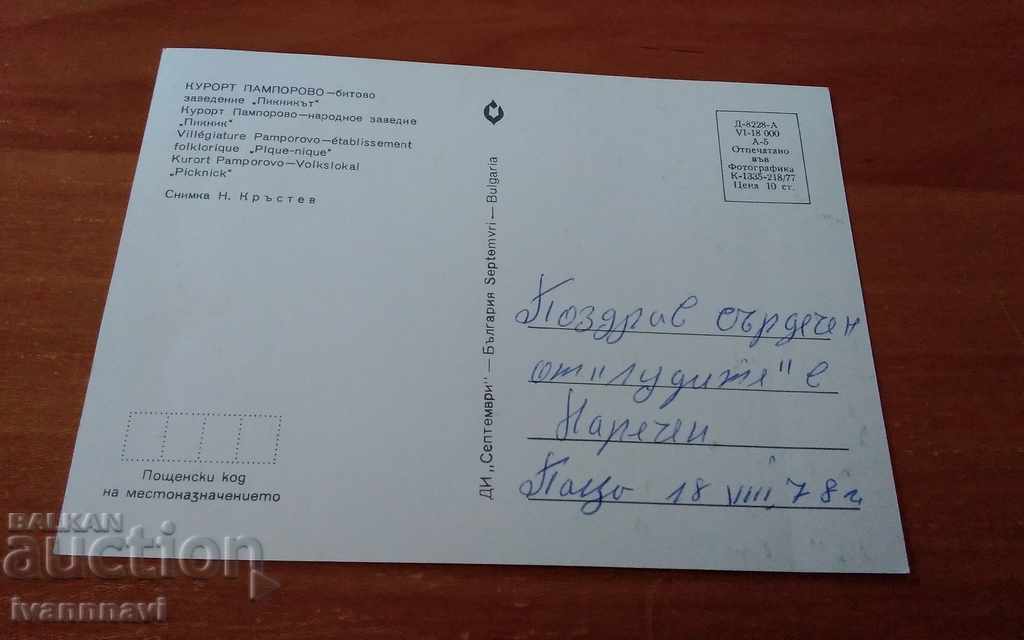 КУРОРТ ПАМПОРОВО—битово
заведение „Пикникът"
Курорт Пампорово—народное заведие
„Пикник"
Villégiature Pamporovo—établissement
folklorique „Pique-nique"
Kurort Pamporovo—Volkslokal
„Picknick"
Снимка Н. Кръстев
Пощенски код
на местоназначението
ДИ „Септември" — България Septemvri — Bulgaria
Д-8228-А
VI-18 000
А-5
Отпечатано
във
Фотографика
К-1335-218/77
Цена 10 ст.
Поздрав сърдечен
от "лудите" в
Наречен
Пацо 18 VIII 78 г.
BALKAN
auction
ivannnavi